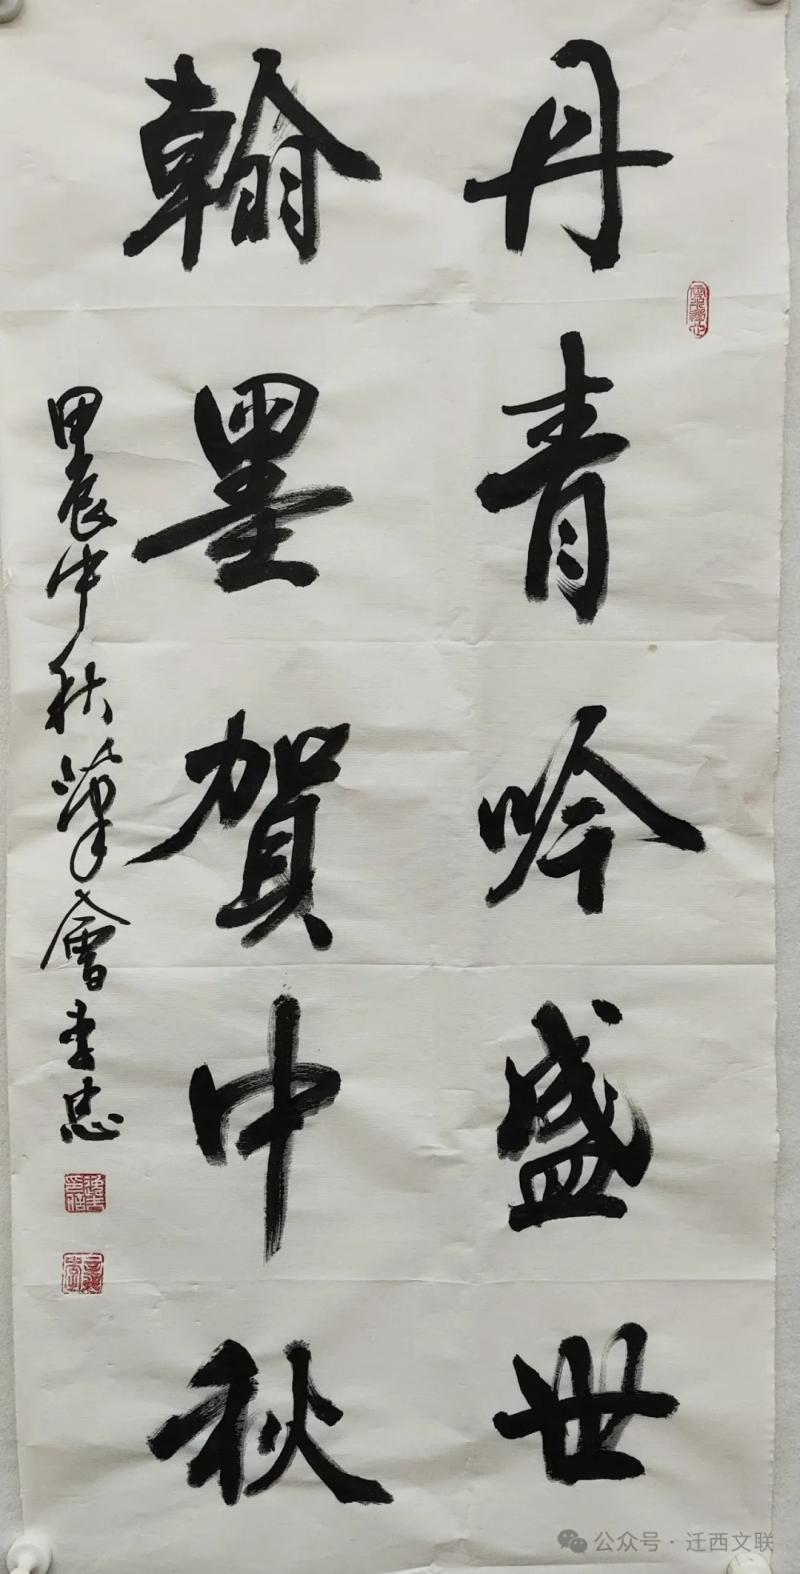 丹青吟盛世
翰墨賀中秋
甲辰中秋筆會李忠
公众号·迁西文联